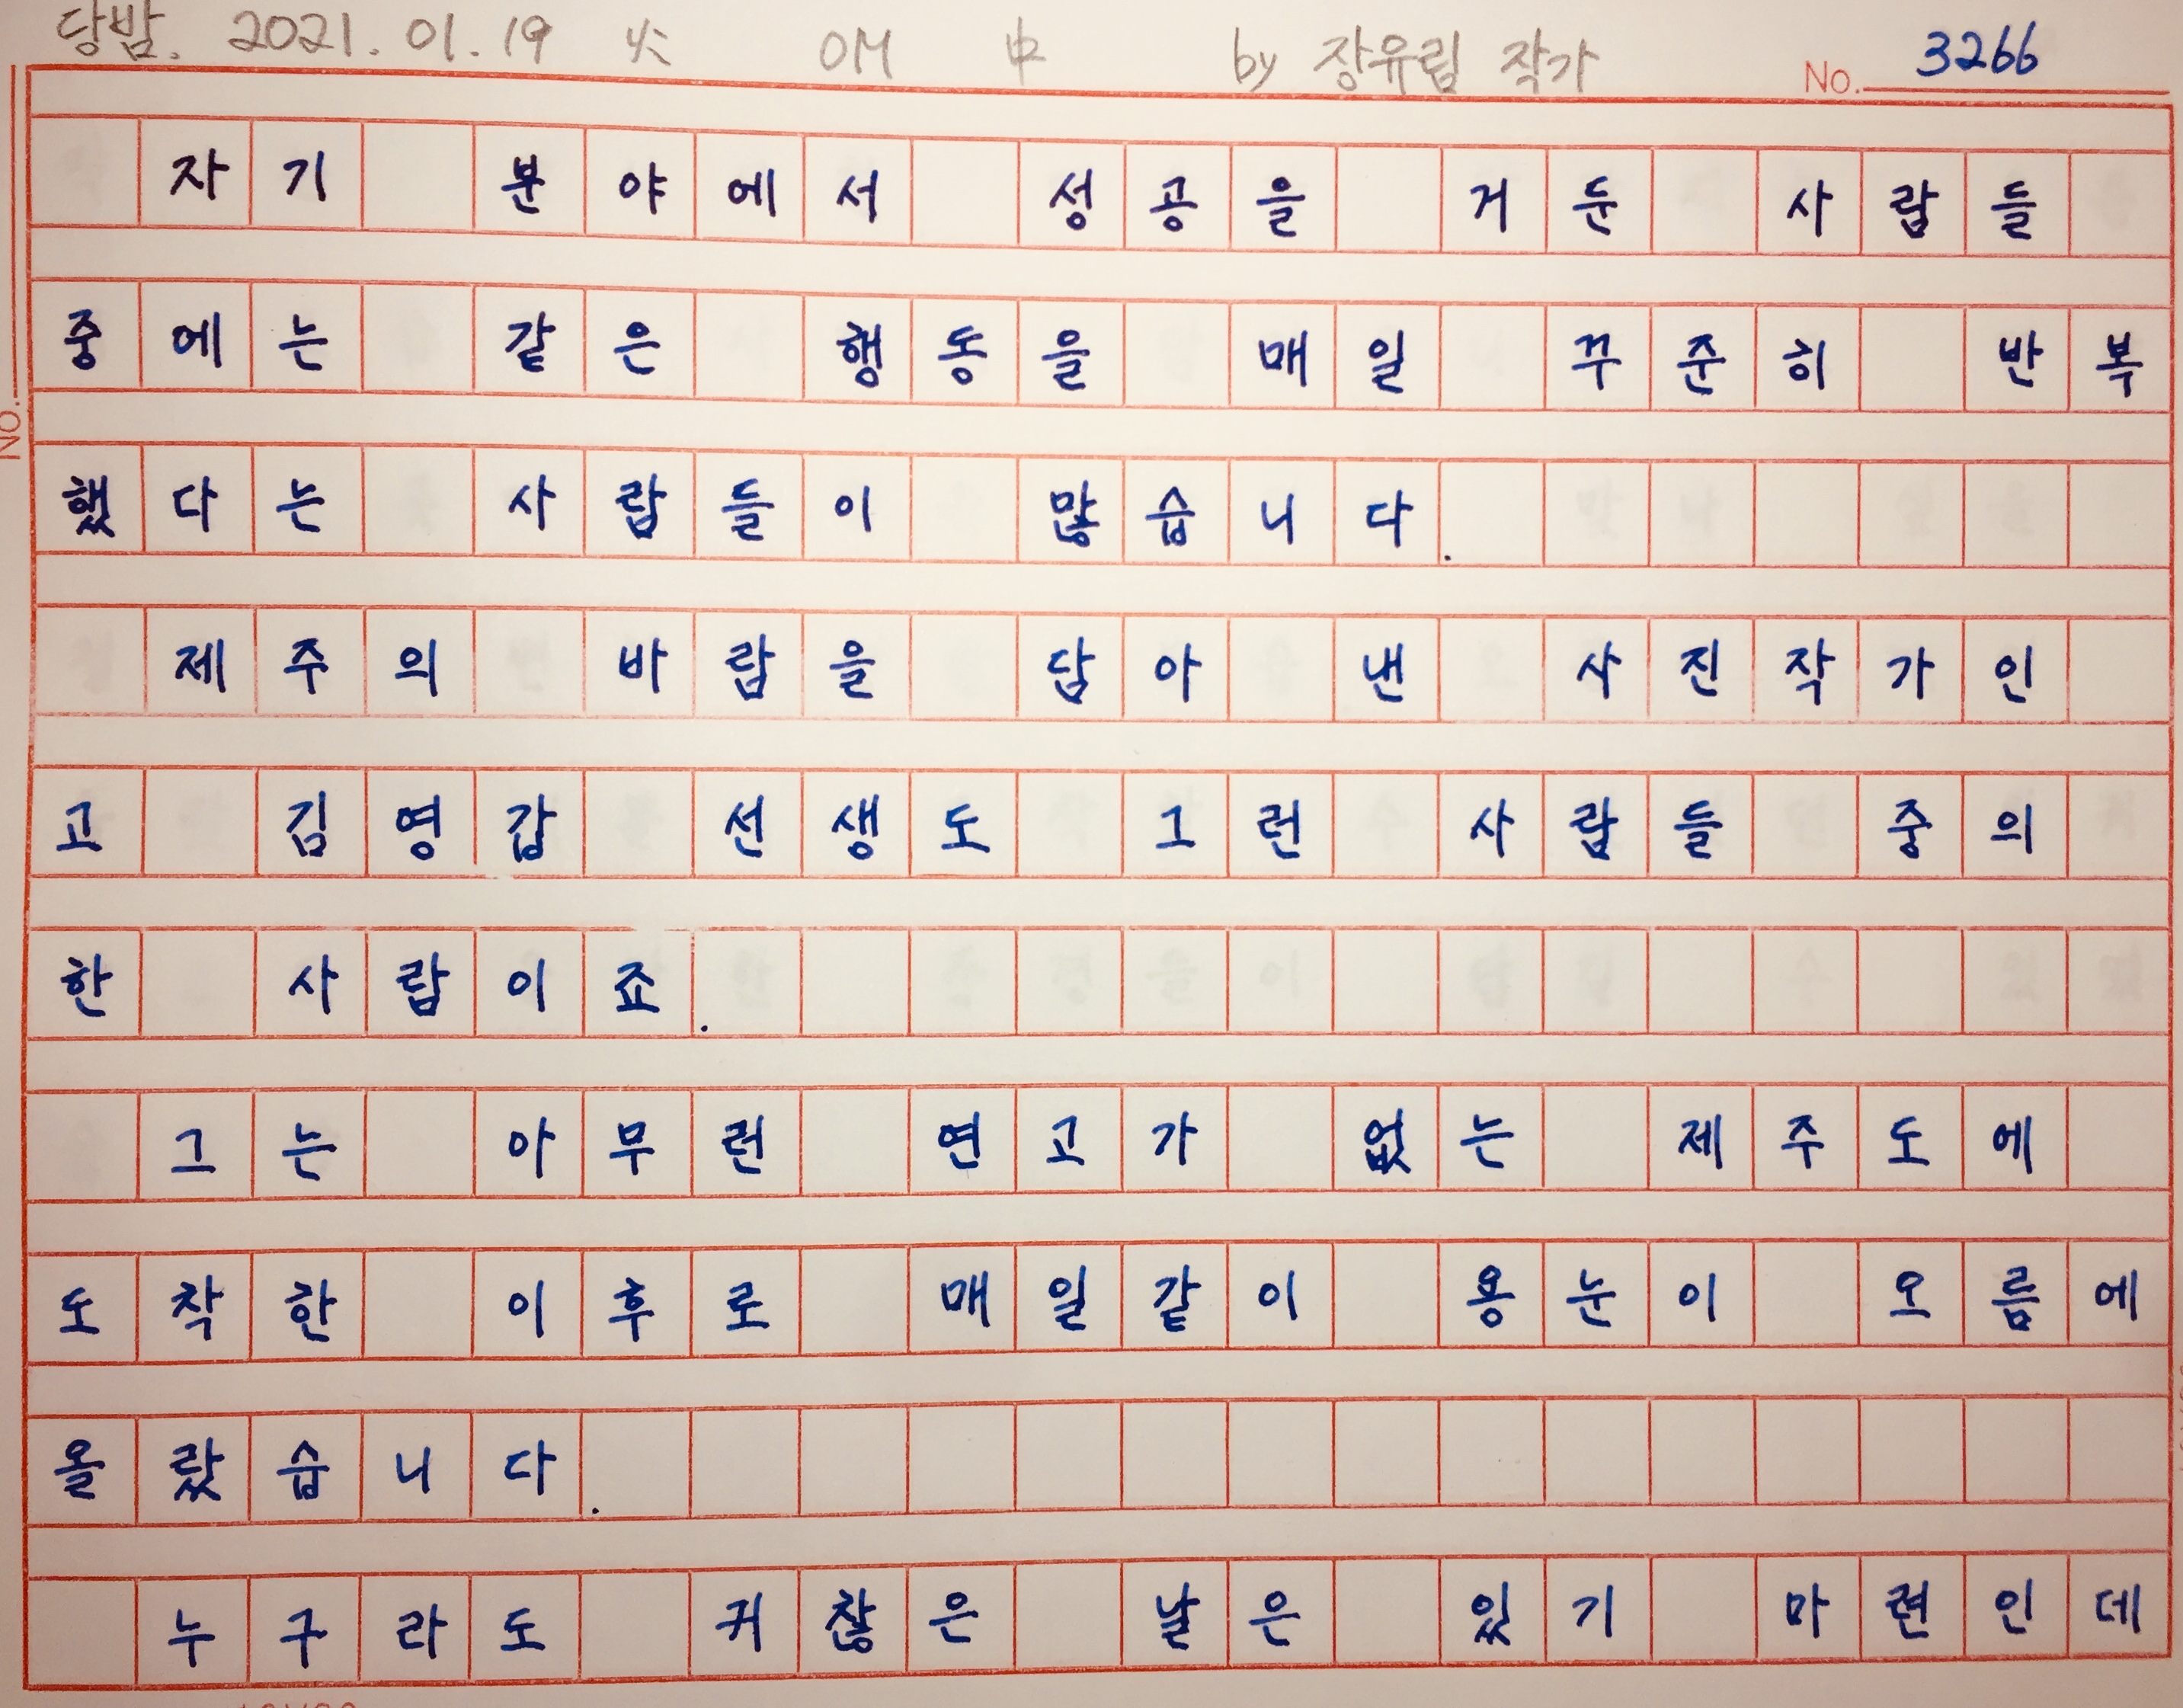 당밤. 2021. 01. 19 火 OM 中 by 장유림 작가 No. 3266
자기 분야에서 성공을 거둔 사람들
중에는 같은 행동을 매일 꾸준히 반복
했다는 사람들이 많습니다.
제주의 바람을 담아 낸 사진작가인
고 김영갑 선생도 그런 사람들 중의
한 사람이죠.
그는 아무런 연고가 없는 제주도에
도착한 이후로 매일같이 용눈이 오름에
올랐습니다.
누구라도 귀찮은 날은 있기 마련인데
No.